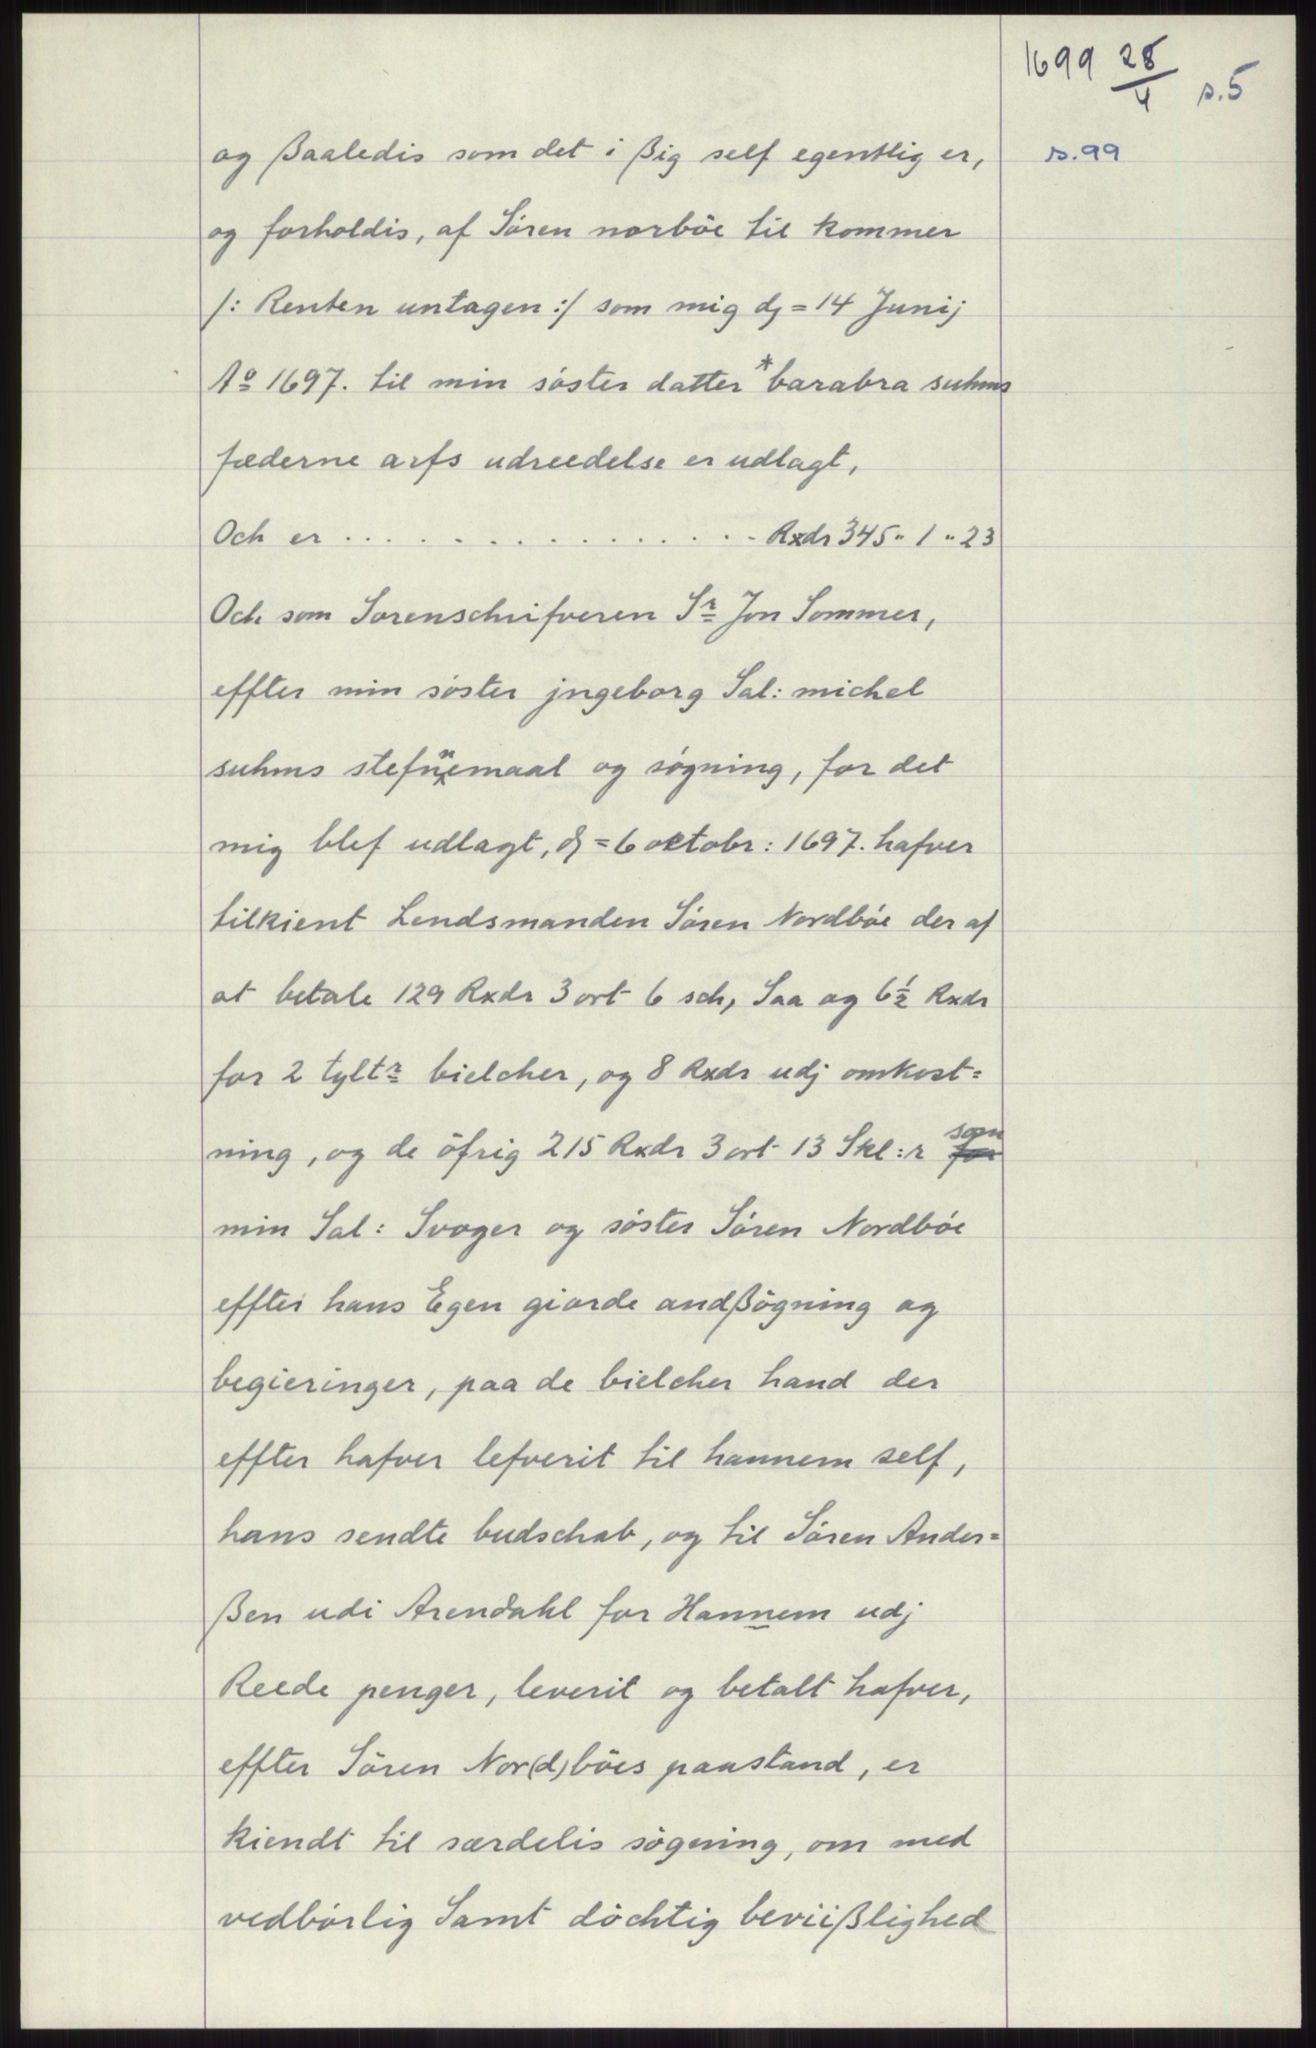 1699 28/4 s.5
s.99
og ßaaledis som det i ßig self egentlig er,
og forholdis, af Sören norböe til kommer
/: Renten untagen :/ som mig dj = 14 Junij
Aº 1697. til min söster datter *barabra suhms
fæderne arfs udreedelse er udlagt,
Och er . . . . . . . . . . . . . . . . Rxdr 345 " 1 " 23
Och som Sorenschrifveren Sr Jon Sommer,
effter min söster jngeborg Sal: michel
suhms stefnemaal og sögning, for det
mig blef udlagt, dj = 6 octobr: 1697. hafver
tilkient Lendsmanden Sören Nordböe der af
at betale 129 Rxdr 3 ort 6 sch, Saa og 6 ½ Rxdr
for 2 tyltr bielcher, og 8 Rxdr udj omkost=
ning, og de öfrig 215 Rxdr 3 ort 13 Skl:r som
min Sal: Svoger og söster Sören Nordböe
effter hans Egen giorde andßögning og
begieringer, paa de bielcher hand der
effter hafver lefverit til hannem self,
hans sendte budschab, og til Sören Ander=
ßen udi Arendahl for Hannem udj
Reede penger, leverit og betalt hafver,
effter Sören Nor(d)böes paastand, er
kiendt til særdelis sögning, om med
vedbörlig Samt döchtig beviißlighed